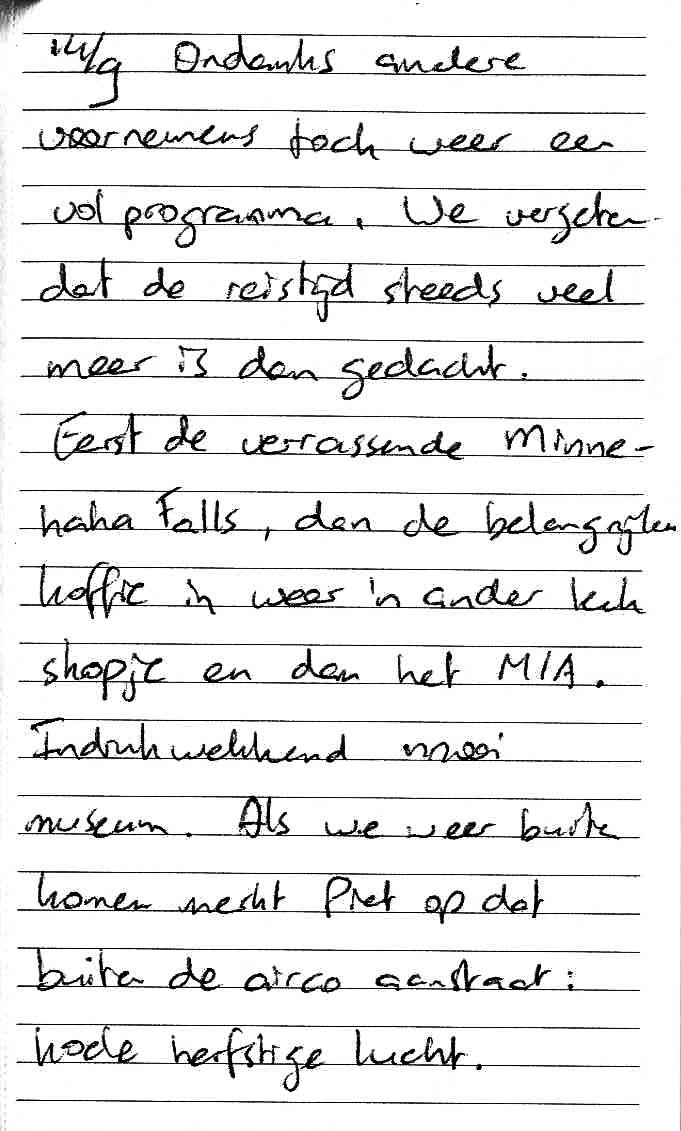 14/9 Ondanks andere
voornemens toch weer een
vol programma. We vergeten
dat de reistijd steeds veel
meer is dan gedacht.
Eerst de verrassende Minne-
haha Falls, dan de belangrijken
koffie in weer 'n ander leuk
shopje en dan het MIA.
Indrukwekkend mooi
museum. Als we weer buiten
komen merkt Piet op dat
buiten de airco aanstaat:
koele herfstige lucht.